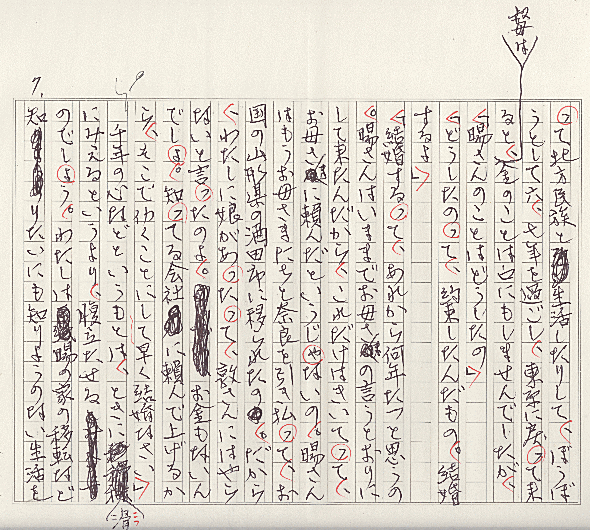 って地方民族と生活したりして、ぼうぼ
うとして六、七年を過ごし、東京に戻って来
ると、金のことは口にもしませんでしたが、
督は
「賜さんのことはどうしたの」
「どうしたのって、約束したんだもの。結婚
するよ」
「結婚するって、あれから何年たつと思うの
。賜さんはいままでお母さんの言うとおりに
して来たんだから、これだけはきいてって、
お母さんに頼んだというじゃないの。賜さん
はもうお母さまたちと奈良を引き払って、お
国の山形県の酒田市に移られたの。だから
「わたしに娘があったって、敦さんにはやら
ないと言ったのよ。お金もないん
でしょ。知ってる会社に頼んで上げるか
ら、そこで働くことにして早く結婚なさい」
千年の心などというものは、ときに
滑
にみえるというより、腹立たせる
のでしょう。わたしは賜の家の移転など
知りたいにも知りようのない生活を
7.